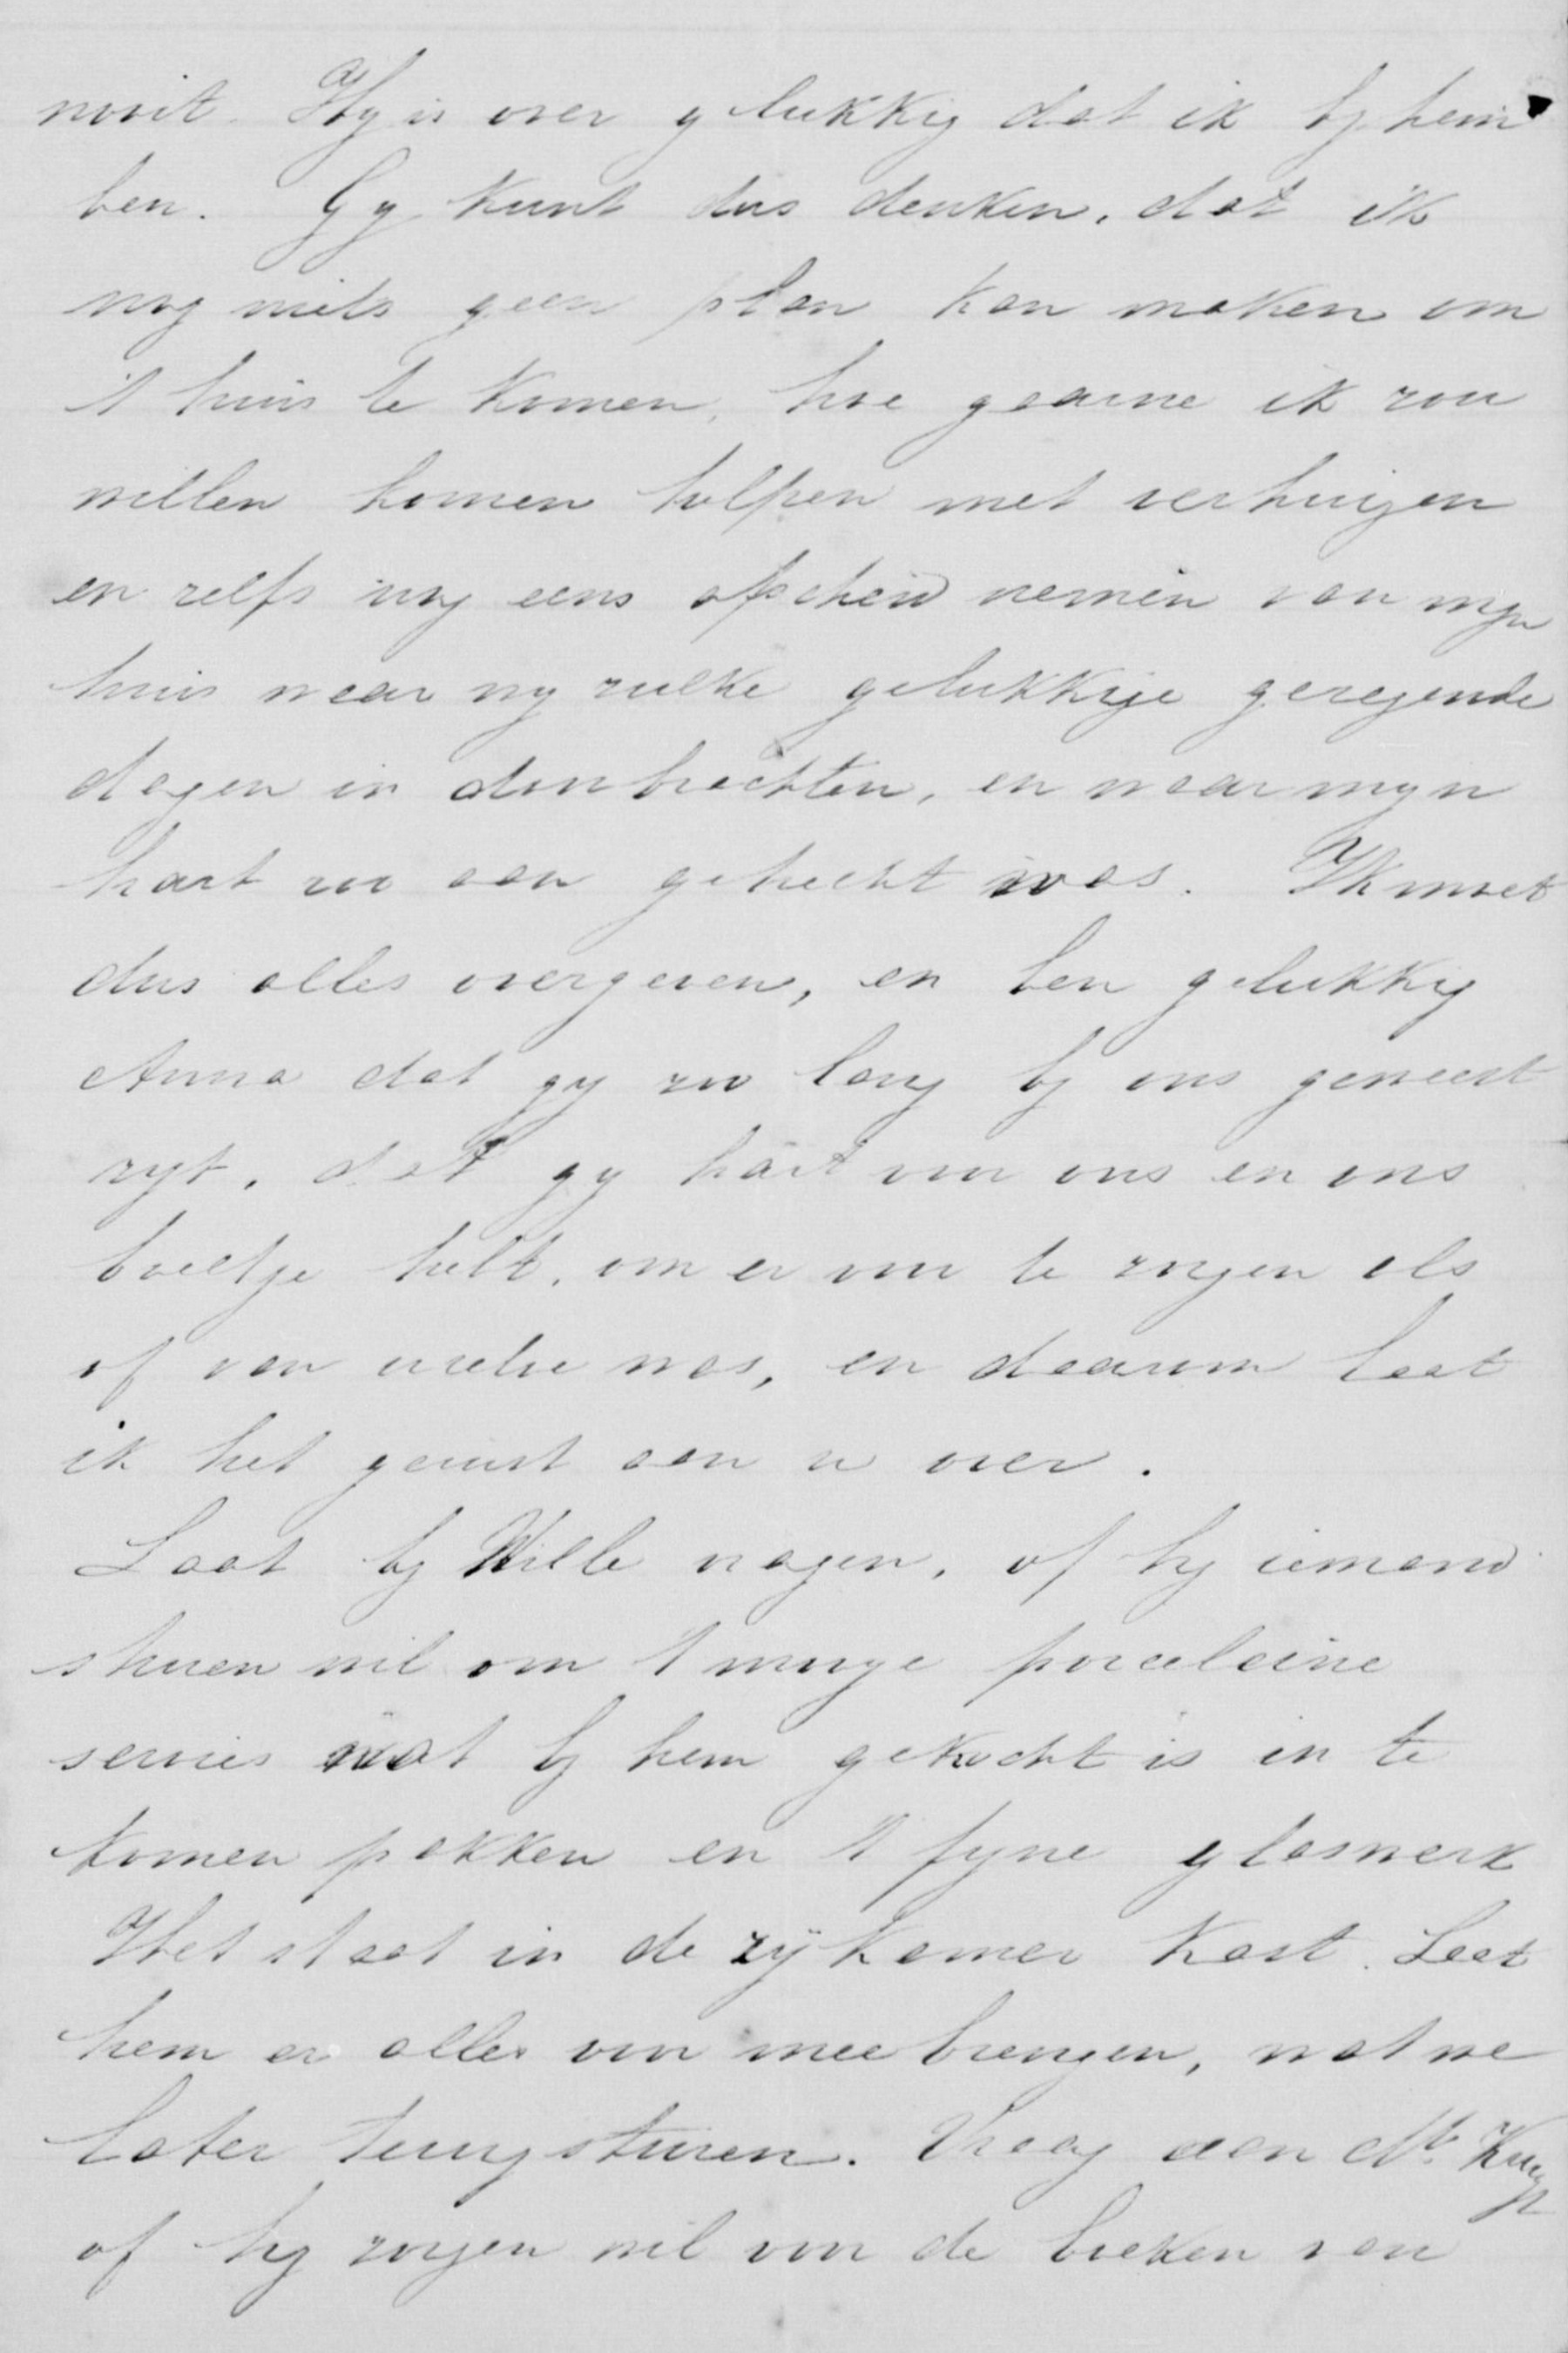 nooit. Hy is over gelukkig dat ik by hem
ben. Gy kunt dus denken, dat ik
nog niets geen plan kan maken om
't huis te komen, hoe gaarne ik zou
willen komen helpen met verhuizen
en zelfs nog eens afscheid nemen van myn
huis waar wy zulke gelukkige gezegende
dagen in doorbrachten, en waar myn
hart zoo aan gehecht was. Ik moet
dus alles overgeven, en ben gelukkig
Anna dat gy zoo lang by ons geweest
zyt, dat gy hart voor ons en ons
boeltje hebt, om er voor te zorgen als
of van uwelve was, en daarom laat
ik het gerust aan u over.
Laat by Wille vragen, of hy iemand
sturen wil om 't mooye porceleine
servies wat by hem gekocht is in te
komen pakken en 't fyne glaswerk
Het staat in de zykamer kast. Laat
hem er alles voor mee brengen, wat we
later terug sturen. Vraag aan Mr.
of hy zorgen wil voor de boeken van